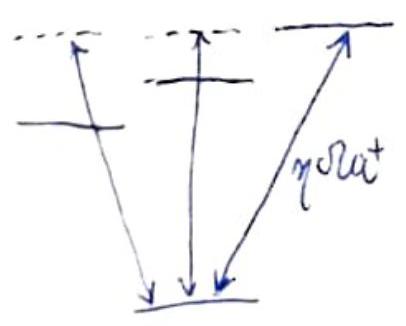 ηΩa⁺